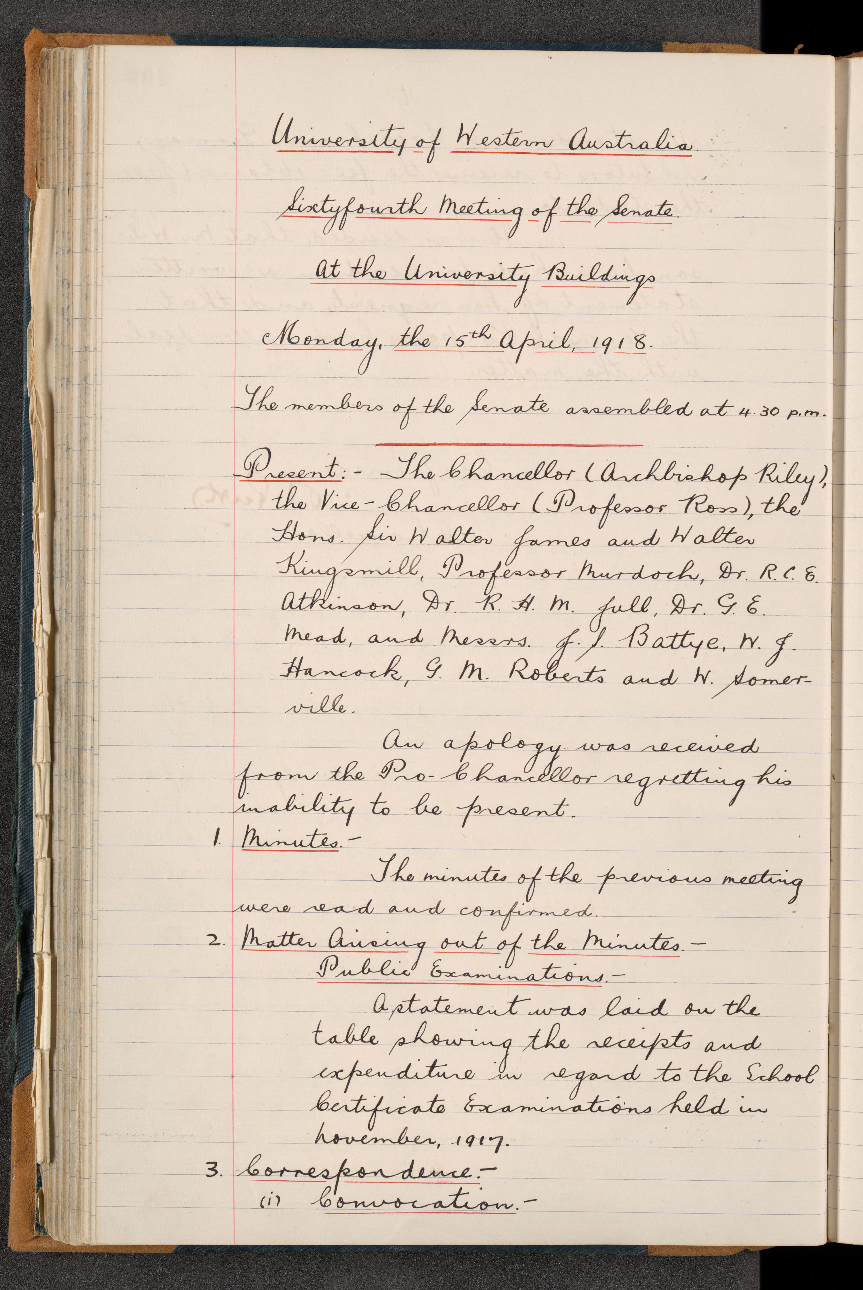 University of Western Australia.
Sixtyfourth Meeting of the Senate.
At the University Buildings
Monday, the 15th April, 1918.
The members of the Senate assembled at 4.30 p.m.
Present:- The Chancellor (Archbishop Riley),
the Vice-Chancellor (Professor Ross), the
Hons. Sir Walter James and Walter
Kingsmill, Professor Murdoch, Dr. R. C. E.
Atkinson, Dr. R. H. M. Jull, Dr. G. E.
Mead, and Messrs. J. S. Battye, W. J.
Hancock, G. M. Roberts and W. Somer-
ville.
An apology was received
from the Pro-Chancellor regretting his
inability to be present.
1. Minutes.-
The minutes of the previous meeting
were read and confirmed.
2. Matter Arising out of the Minutes.-
Public Examinations.-
A statement was laid on the
table showing the receipts and
expenditure in regard to the School
Certificate Examinations held in
November, 1917.
3. Correspondence.-
(i) Convocation.-